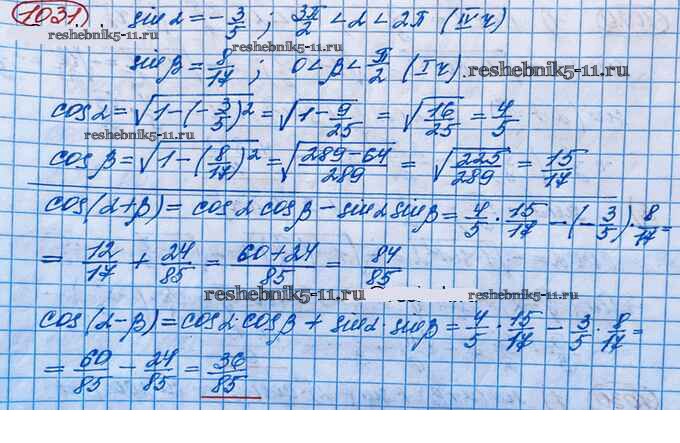 1031) sin α = -3/5 ; 3π/2 < α < 2π (IV ч)
sin β = 8/17 ; 0 < β < π/2 (I ч). reshebnik5-11.ru
cos α = √(1-(-3/5)²) = √(1-9/25) = √(16/25) = 4/5
reshebnik5-11.ru
cos β = √(1-(8/17)²) = √((289-64)/289) = √(225/289) = 15/17
cos(α+β) = cos α cos β - sin α sin β = 4/5 · 15/17 - (-3/5) · 8/17 =
= 12/17 + 24/85 = (60+24)/85 = 84/85
reshebnik5-11.ru
cos(α-β) = cos α · cos β + sin α · sin β = 4/5 · 15/17 - 3/5 · 8/17 =
= 60/85 - 24/85 = 36/85